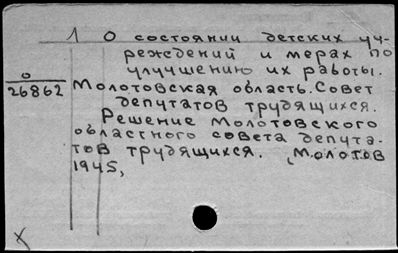 1 О состоянии детских уч-
реждений и мерах по
улучшению их работы.
О
26862
Молотовская область. Совет
депутатов трудящихся.
Решение Молотовского
областного совета депута-
тов трудящихся. Молотов
1945,